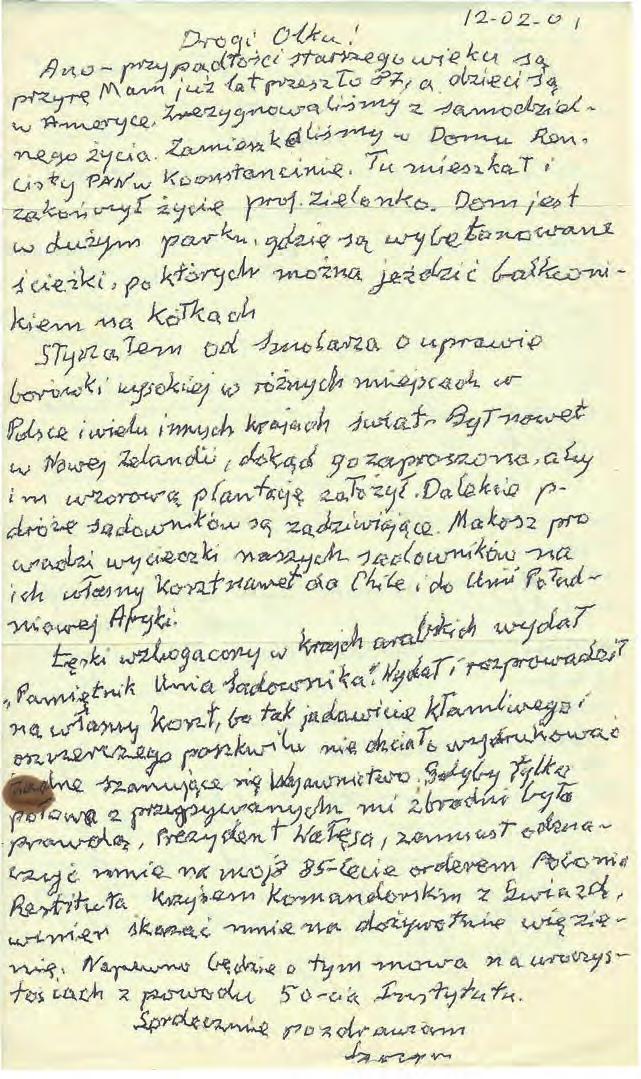 12-02-01
Drogi Olku!
Ano – przypadłości starszego wieku są
przyrę Mam już lat przeszło 87, a dzieci są
w Ameryce. Zrezygnowaliśmy z samodziel-
nego życia. Zamieszkaliśmy w Domu Ren-
cisty PAN w Koonstancinie. Tu mieszkał i
zakończył życie prof. Zielonko. Dom jest
w dużym parku, gdzie są wybetonowane
ścieżki, po których można jeździć balkoni-
kiem na kółkach
Słyszałem od Smolarza o uprawie
borówki wysokiej w różnych miejscach w
Polsce i wielu innych krajach świata. Był nawet
w Nowej Zelandii, dokąd go zaproszono, aby
im wzorową plantację założył. Dalekie p-
dróże sadowników są zadziwiające. Makosz pro
wadzi wycieczki naszych sadowników na
ich własny koszt nawet do Chile i do Unii Połud-
niowej Afryki.
Łęski wzbogacony w krajch arabskich wydał
„Pamiętnik Unia Sadownika". Wydał i rozprowadził
na własny koszt, bo tak jadowicie kłamliwego i
oszczerczego paszkwilu nie chciało wydrukować
żadne szanujące się Wydawnictwo. Gdyby tylko
połowa z przypisywanych mi zbrodni było
prawdą, Prezydent Wałęsa, zamiast odzna-
czyć mnie na moje 85-lecie orderem Polonia
Restituta krzyżem Komandorskim z Gwiazdą,
winien skazać mnie na dożywotnie więzie-
nie. Napewno będzie o tym mowa na uroczys-
tościach z powodu 50-cia Instytutu.
Serdecznie pozdrawiam